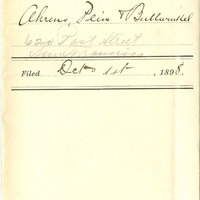 Ahrens, Pein & Bullwinkel
620 Post Street
San Francisco
Filed Oct 1st, 1898.